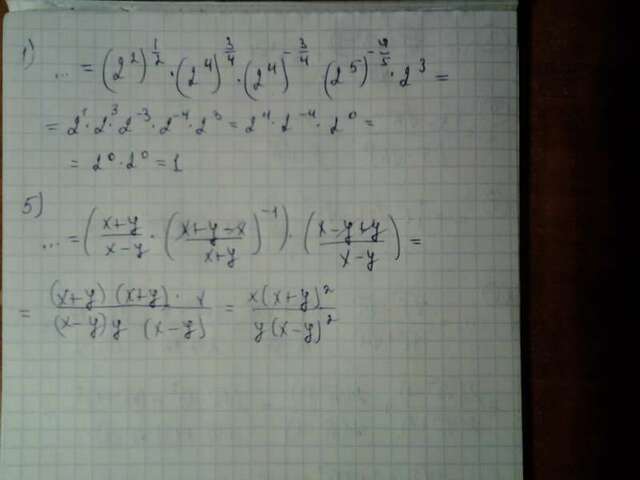 1)
... = (2²)^(1/2) · (2⁴)^(3/4) · (2⁴)^(-3/4) (2⁵)^(-4/5) · 2³ =
= 2¹ · 2³ · 2⁻³ · 2⁻⁴ · 2³ = 2⁴ · 2⁻⁴ · 2⁰ =
= 2⁰ · 2⁰ = 1
5)
... = ((x+y)/(x-y) · ((x+y-x)/(x+y))⁻¹) · ((x-y+y)/(x-y)) =
= ((x+y) (x+y) · x)/((x-y)y (x-y)) = (x(x+y)²)/(y(x-y)²)